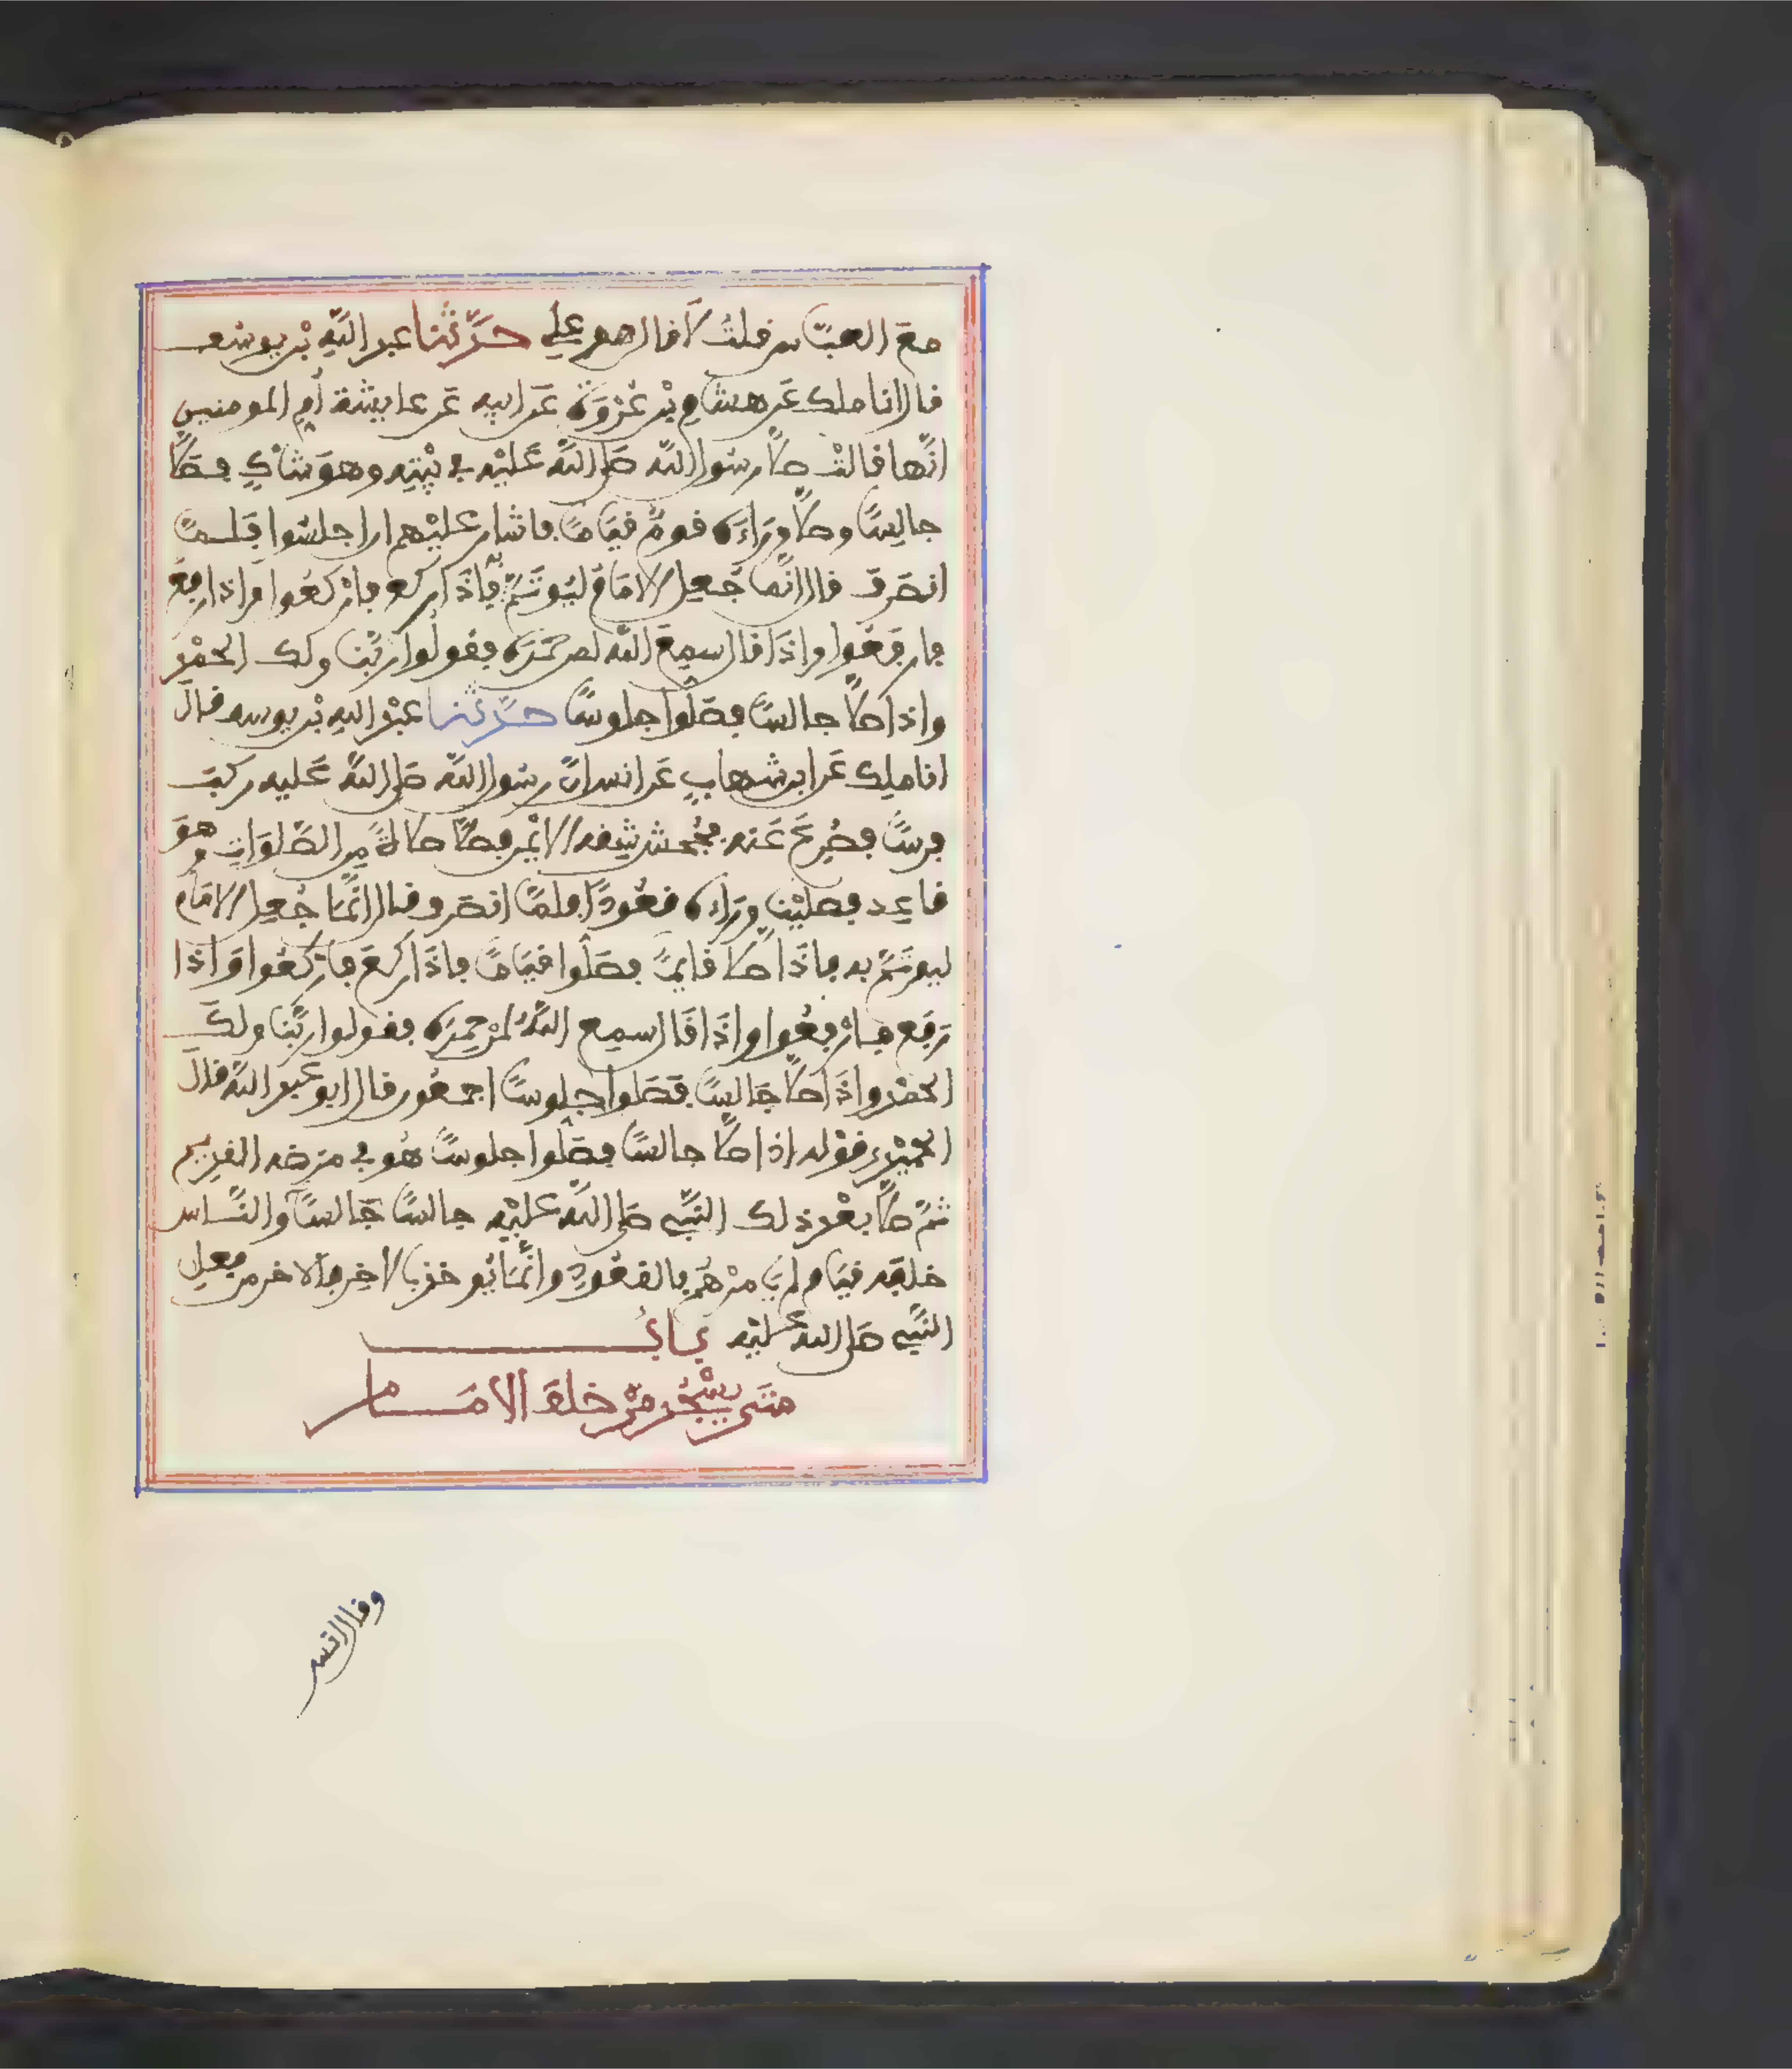 مع العباس فلت لا فال هو علي حدثنا عبد الله بن يوسف
فال انا ملك عن هشام بن عروة عن ابيه عن عايشة أم المومنين
انها فالت صلى رسول الله صلى الله عليه في بيته وهو شاك فصلى
جالسا وصلى وراءه فوم فياما فاشار عليهم ان اجلسوا فلما
انصرف فال انما جعل الامام ليوتم به فاذا ركع فاركعوا واذا رفع
فارفعوا واذا فال سمع الله لمن حمده ففولوا ربنا ولك الحمد
واذا صلى جالسا فصلوا جلوسا حدثنا عبد الله بن يوسف فال
انا ملك عن ابن شهاب عن انس ان رسول الله صلى الله عليه ركب
فرسا فصرع عنه فجحش شفه الايمن فصلى صلاة من الصلوات وهو
فاعد فصلينا وراءه فعودا فلما انصرف فال انما جعل الامام
ليوتم به فاذا صلى فايما فصلوا فياما فاذا ركع فاركعوا واذا
رفع فارفعوا واذا فال سمع الله لمن حمده ففولوا ربنا ولك
الحمد واذا صلى جالسا فصلوا جلوسا اجمعون فال ابو عبد الله فال
الحميدي فوله اذا صلى جالسا فصلوا جلوسا هو في مرضه الفديم
ثم صلى بعد ذلك النبي صلى الله عليه جالسا جالسا والناس
خلفه فيام لم يامرهم بالفعود وانما يوخذ بالاخر فالاخر من فعل
النبي صلى الله عليه باب
متى يسجد من خلف الامام
وفال انس